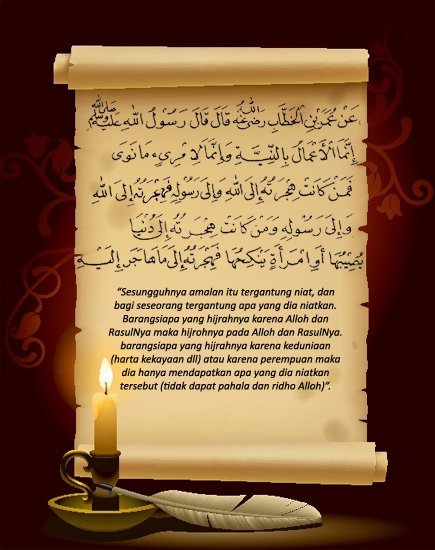 عَنْ عُمَرَ بْنِ الْخَطَّابِ رَضِيَ اللهُ عَنْهُ قَالَ قَالَ رَسُولُ اللهِ ﷺ
إِنَّمَا الْأَعْمَالُ بِالنِّيَّةِ وَإِنَّمَا لِامْرِىءٍ مَا نَوَى
فَمَنْ كَانَتْ هِجْرَتُهُ إِلَى اللهِ وَإِلَى رَسُولِهِ فَهِجْرَتُهُ إِلَى اللهِ
وَإِلَى رَسُولِهِ وَمَنْ كَانَتْ هِجْرَتُهُ إِلَى دُنْيَا
يُصِيْبُهَا أَوِ امْرَأَةٍ يَنْكِحُهَا فَهِجْرَتُهُ إِلَى مَا هَاجَرَ إِلَيْهِ
“Sesungguhnya amalan itu tergantung niat, dan
bagi seseorang tergantung apa yang dia niatkan.
Barangsiapa yang hijrahnya karena Alloh dan
RasulNya maka hijrohnya pada Alloh dan RasulNya.
barangsiapa yang hijrahnya karena keduniaan
(harta kekayaan dll) atau karena perempuan maka
dia hanya mendapatkan apa yang dia niatkan
tersebut (tidak dapat pahala dan ridho Alloh)”.